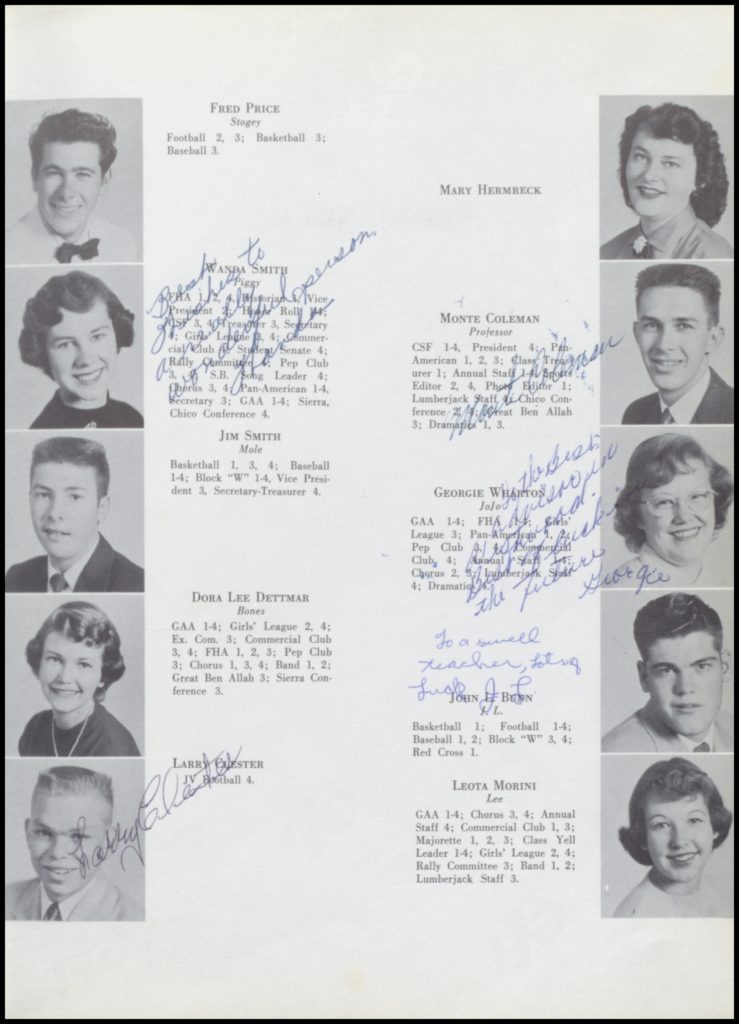 FRED PRICE
Stogey
Football 2, 3; Basketball 3;
Baseball 3.
WANDA SMITH
Piggy
FHA 1, 2, 4, Historian 4, Vice
President 2; Honor Roll 1-4;
CSF 3, 4, Treasurer 3, Secretary
4; Girls' League 3, 4; Commer-
cial Club 4; Student Senate 4;
Rally Committee 4; Pep Club
3, Vice S.B. Song Leader 4;
Chorus 3, 4; Pan-American 1-4,
Secretary 3; GAA 1-4; Sierra,
Chico Conference 4.
Best
wishes to
an all
wonderful person.
Wanda
JIM SMITH
Mole
Basketball 1, 3, 4; Baseball
1-4; Block "W" 1-4, Vice Presi-
dent 3, Secretary-Treasurer 4.
DORA LEE DETTMAR
Bones
GAA 1-4; Girls' League 2, 4;
Ex. Com. 3; Commercial Club
3, 4; FHA 1, 2, 3; Pep Club
3; Chorus 1, 3, 4; Band 1, 2;
Great Ben Allah 3; Sierra Con-
ference 3.
LARRY CLESTER
JV Football 4.
Larry Clester
MARY HERMRECK
MONTE COLEMAN
Professor
CSF 1-4, President 4; Pan-
American 1, 2, 3; Class Treas-
urer 1; Annual Staff 1-4, Sports
Editor 2, 4, Photo Editor 1;
Lumberjack Staff 4; Chico Con-
ference 2, 4; Great Ben Allah
3; Dramatics 1, 3.
Monte Coleman
GEORGIE WHARTON
JoJo
GAA 1-4; FHA 1-4; Girls'
League 3; Pan-American 1, 2;
Pep Club 3, 4; Commercial
Club 4; Annual Staff 1-4;
Chorus 2, 3; Lumberjack Staff
4; Dramatics 4.
To the best
advisor in
Westwood.
Best of luck in
the future
Georgie
To a swell
teacher, lots of
Luck J L
JOHN L. BUNN
J. L.
Basketball 1; Football 1-4;
Baseball 1, 2; Block "W" 3, 4;
Red Cross 1.
LEOTA MORINI
Lee
GAA 1-4; Chorus 3, 4; Annual
Staff 4; Commercial Club 1, 3;
Majorette 1, 2, 3; Class Yell
Leader 1-4; Girls' League 2, 4;
Rally Committee 3; Band 1, 2;
Lumberjack Staff 3.